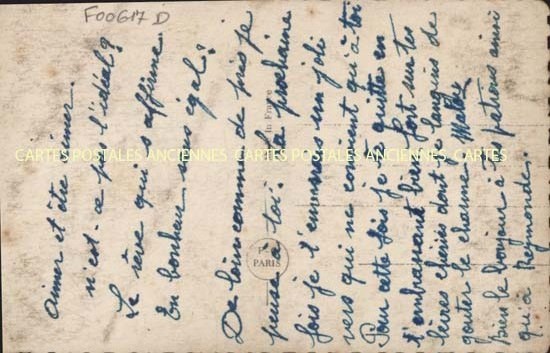 F00617 D
Aimer et être aimer.
n'est-ce pas l'idéal?
Le rêve qui s'affirme
En bonheur sans égal?
De loin comme de près je
pense à toi. La prochaine
fois je t'enverrai un joli
vers qui ne convient qu'à toi
Pour cette fois je te quitte en
t'embrassant bien fort sur tes
lèvres chéries dont je languis de
goûter le charme.
Bien le bonjour à tes patrons ainsi
qu'à Reymonde.
in France
PARIS
CARTES POSTALES ANCIENNES CARTES POSTALES ANCIENNES CARTES POSTALES ANCIENNES